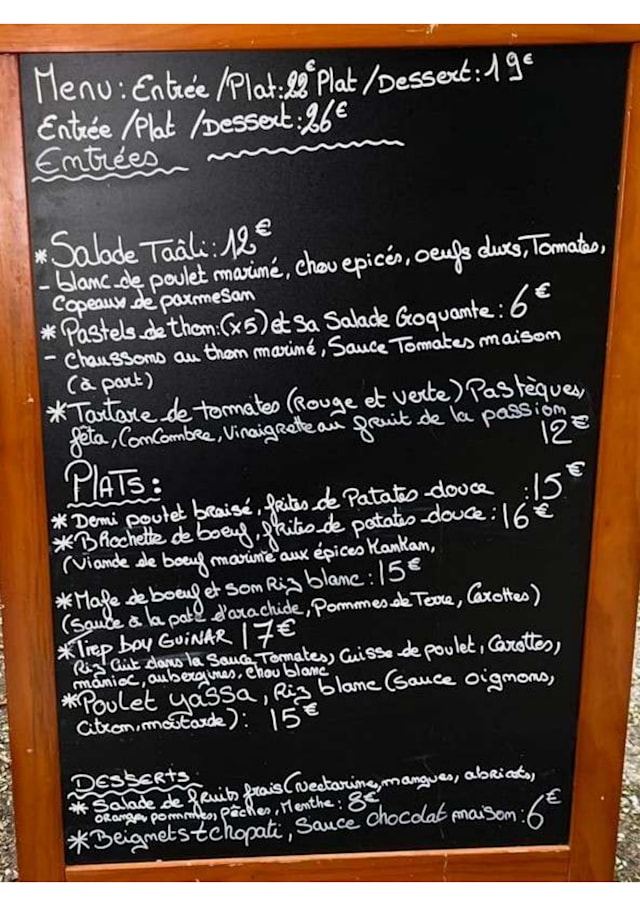 Menu : Entrée /Plat : 22€ Plat /Dessert : 19€
Entrée /Plat /Dessert : 26€
Entrées
* Salade Taâli : 12€
- blanc de poulet mariné, chou epicés, oeufs durs, Tomates,
Copeaux de parmesan
* Pastels de thon : (x5) et Sa Salade Croquante : 6€
- Chaussons au thon mariné, Sauce Tomates maison
(à part)
* Tartare de tomates (Rouge et verte) Pastèques,
féta, ComCombre, Vinaigrette au fruit de la passion
12€
PLATS :
* Demi poulet braisé, frites de Patates douce : 15€
* BRochette de boeuf, frites de patates douce : 16€
(Viande de boeuf mariné aux épices KanKan,
* Mafe de boeuf et son Riz blanc : 15€
(Sauce à la pate d'arachide, Pommes de Terre, Carottes)
* Tiep boy GUiNAR 17€
Riz Cuit dans la Sauce Tomates, Cuisse de poulet, Carottes,
manioc, aubergines, chou blanc
* Poulet yassa, Riz blanc (Sauce oignons,
Citron, moutarde) : 15€
DESSERTS
* Salade de fruits frais (Nectarine, mangues, abricots,
oranges, pommes, pêches, Menthe : 8€
* Beignets tchopati, Sauce chocolat maison : 6€